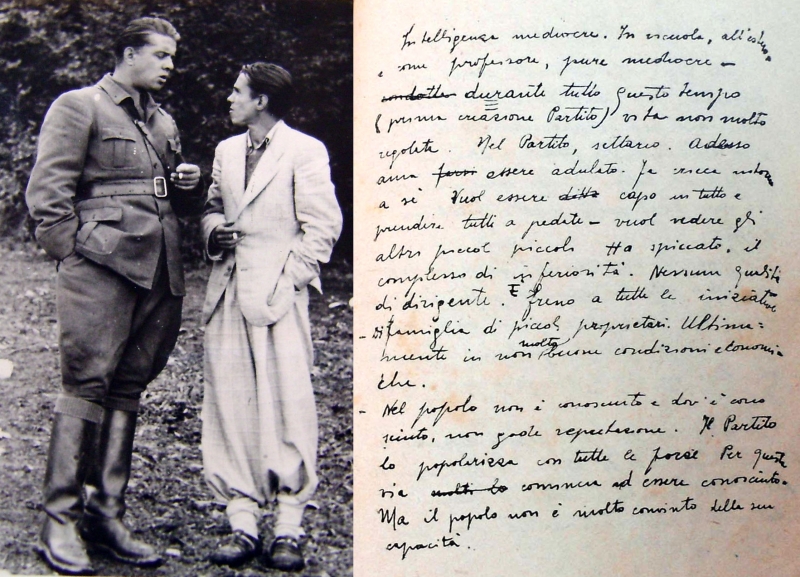 Intelligenza mediocre. In iscuola, all'estero
e come professore, pure mediocre –
condotta durante tutto questo tempo
(prima creazione Partito) vita non molto
regolata. Nel Partito, settario. Adesso
ama forsi essere adulato. Fa cricca intorno
a sè Vuol essere ditta capo in tutto e
prendere tutti a pedate – vuol vedere gli
altri piccol piccoli Ha spiccato, il
complesso di inferiorità. Nessuna qualità
di dirigente. È freno a tutte le iniziative
– Di famiglia di piccoli proprietari. Ultima=
mente in non molto buone condizioni economi-
che.
– Nel popolo non è conosciuto e dov'è cono
sciuto, non gode reputazione. Il Partito
lo popolarizza con tutte le forze Per questa
via molti lo comincia ad essere conosciuto.
Ma il popolo non è molto convinto della sua
capacità.